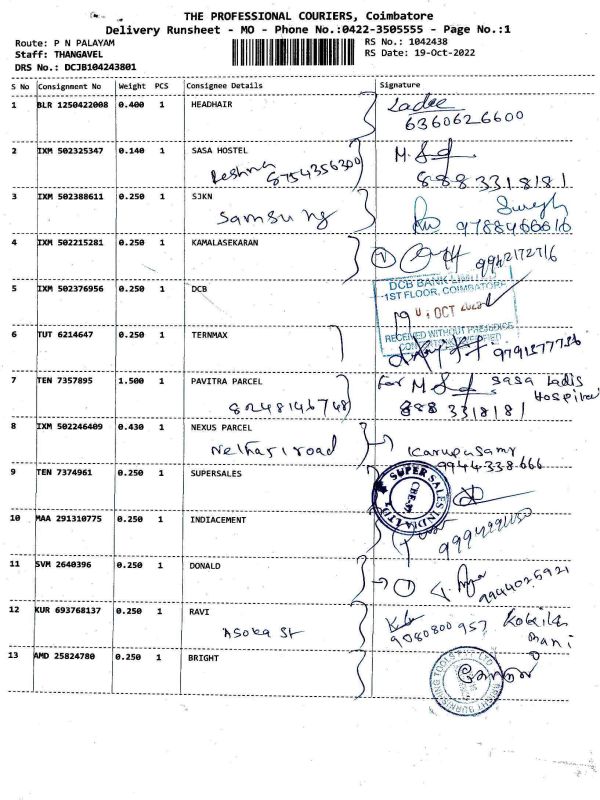 THE PROFESSIONAL COURIERS, Coimbatore
Delivery Runsheet - MO - Phone No.:0422-3505555 - Page No.:1
Route: P N PALAYAM RS No.: 1042438
Staff: THANGAVEL RS Date: 19-Oct-2022
DRS No.: DCJB104243801
S No Consignment No Weight PCS Consignee Details Signature
1 BLR 1250422008 0.400 1 HEADHAIR
6360626600
2 IXM 502325347 0.140 1 SASA HOSTEL
Reshma 8754356300
888 3318181
3 IXM 502388611 0.250 1 SJKN
Samsung 9788466616
4 IXM 502215281 0.250 1 KAMALASEKARAN
1 9942172716
5 IXM 502376956 0.250 1 DCB
DCB BANK LIMITED
1ST FLOOR, COIMBATORE
OCT
RECEIVED WITHOUT PREJUDICE
6 TUT 6214647 0.250 1 TERNMAX
7 TEN 7357895 1.500 1 PAVITRA PARCEL
for sasa Ladis Hospital
8248146748 888 3318181
8 IXM 502246409 0.430 1 NEXUS PARCEL
road
Karupusamy
9944338666
9 TEN 7374961 0.250 1 SUPERSALES
SUPER SALES INDIA LTD
10 MAA 291310775 0.250 1 INDIACEMENT
11 SVM 2640396 0.250 1 DONALD
1 9944025921
12 KUR 693768137 0.250 1 RAVI
Asoka St
9080800957 Kokila
mani
13 AMD 25824780 0.250 1 BRIGHT